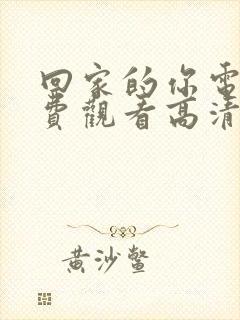 回家的你電
費觀看高清
黄沙鳖